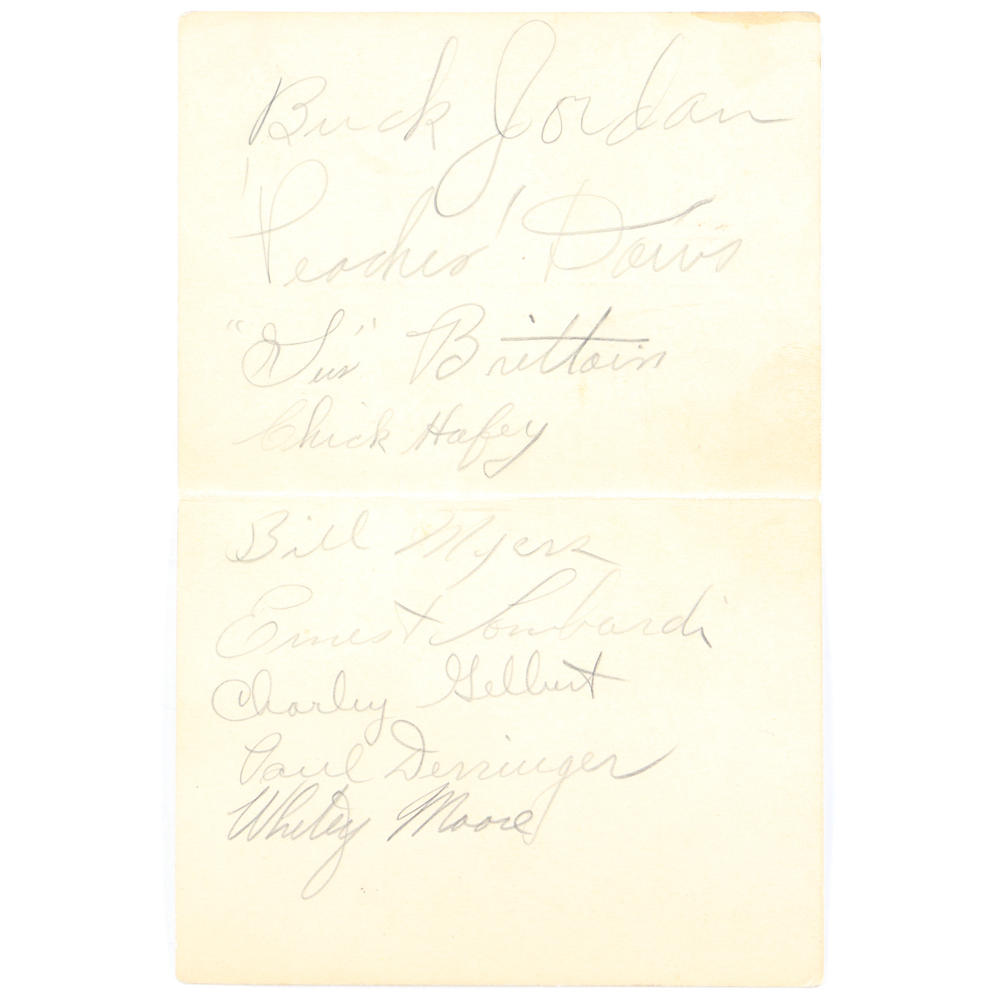 Buck Jordan
'Peaches' Davis
"Gus" Brittain
Chick Hafey
Bill Myers
Ernest Lombardi
Charley Gelbert
Paul Derringer
Whitey Moore